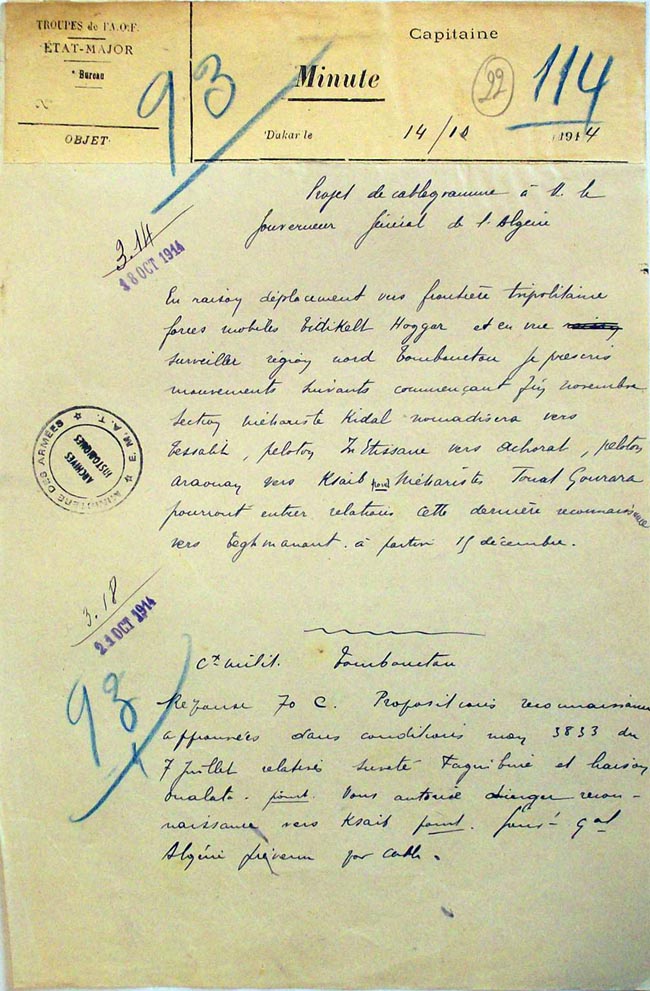 TROUPES de l'A.O.F.
ÉTAT-MAJOR
Bureau
N°
OBJET
93
Capitaine
Minute
22
114
Dakar le 14/10 1914
Projet de cablegramme à M. le
Gouverneur Général de l'Algérie
3.14
18 OCT 1914
En raison déplacement vers frontière tripolitaine
forces mobiles Tidikelt Hoggar et en vue raison
surveiller région nord Tombouctou je prescris
mouvements suivants commençant fin novembre
section méhariste Kidal nomadisera vers
Tessalit, peloton vers Achorat, peloton
Araouan vers Ksaib point Méharistes Touat Gourara
pourront entrer relations cette dernière reconnaissance
vers à partir 15 décembre.
MINISTERE DES ARMÉES
E.M.A.T.
ARCHIVES
HISTORIQUES
3.18
21 OCT 1914
93
Ct milit. Tombouctou
Réponse 70 C. Propositions reconnaissance
approuvées dans conditions mon 3833 du
7 Juillet relatives sureté Faguibine et liaison
Oualata. point. Vous autorise diriger recon-
naissance vers Ksaib point. Gouv- Gal
Algérie prévenu par cable.